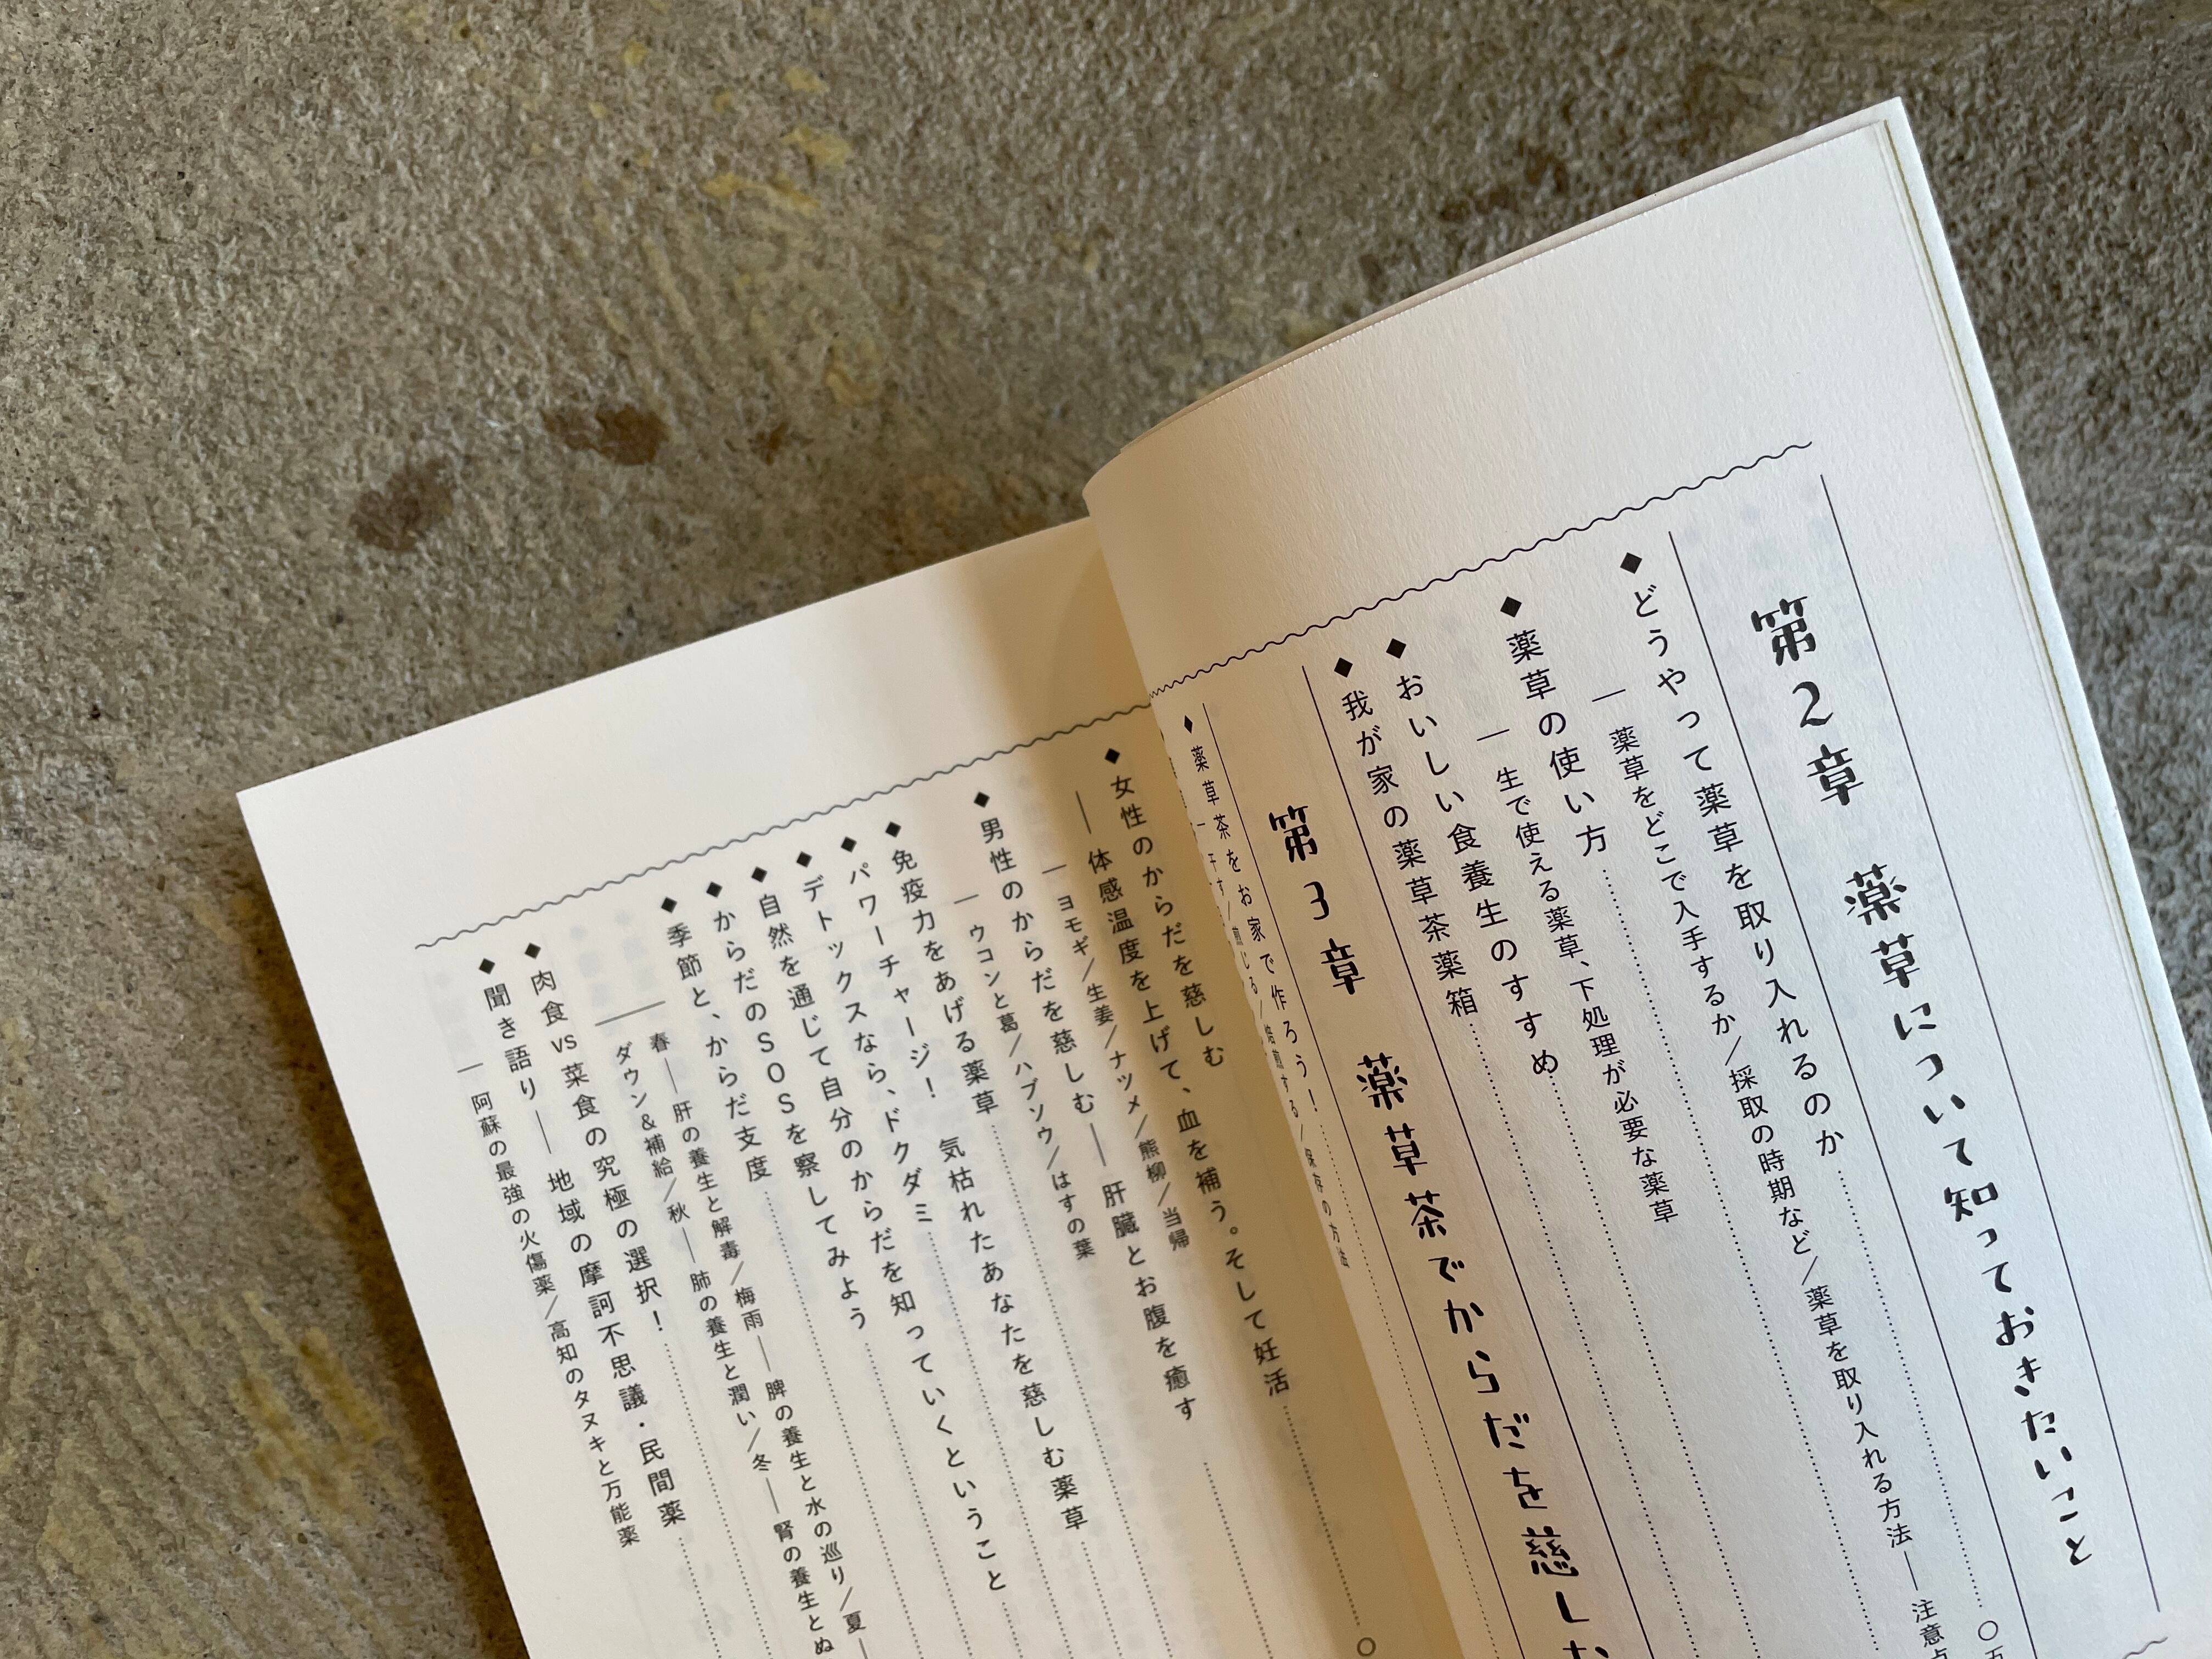 第2章 薬草について知っておきたいこと
◆どうやって薬草を取り入れるのか
— 薬草をどこで入手するか／採取の時期など／薬草を取り入れる方法 — 注意
〇五
◆薬草の使い方
— 生で使える薬草、下処理が必要な薬草
◆おいしい食養生のすすめ
◆我が家の薬草茶薬箱
第3章 薬草茶でからだを慈し
◆薬草茶をお家で作ろう！
— 干す／煎じる／焙煎する／保存の方法
◆女性のからだを慈しむ
— 体感温度を上げて、血を補う。そして妊活
— ヨモギ／生姜／ナツメ／熊柳／当帰
◆男性のからだを慈しむ — 肝臓とお腹を癒す
— ウコンと葛／ハブソウ／はすの葉
◆免疫力をあげる薬草
◆パワーチャージ！ 気枯れたあなたを慈しむ薬草
◆デトックスなら、ドクダミ
◆自然を通じて自分のからだを知っていくということ
◆からだのSOSを察してみよう
◆季節と、からだ支度
— 春 — 肝の養生と解毒／梅雨 — 脾の養生と水の巡り／夏 —
ダウン＆補給／秋 — 肺の養生と潤い／冬 — 腎の養生とぬ
◆肉食vs菜食の究極の選択！
◆聞き語り — 地域の摩訶不思議・民間薬
— 阿蘇の最強の火傷薬／高知のタヌキと万能薬